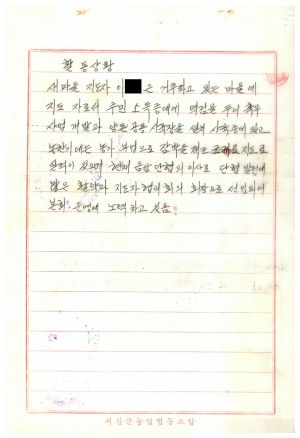 활동상황
새마을 지도자 이 은 거주하고 있는 마을에
지도자로서 주민 소득증대에 역점을 두어 특수
사업 개발과 암은 공동 시작장을 설치 사육중에 있고
농한기에는 농가 부업으로 갈포을 재고 지도로
실적이 있으며 현재 음암 단협의 이사로 단협 발전에
많은 활약과 지도자 협의회의 회장으로 선임되어
분회 운영에 노력하고 있음.
서산군농업협동조합